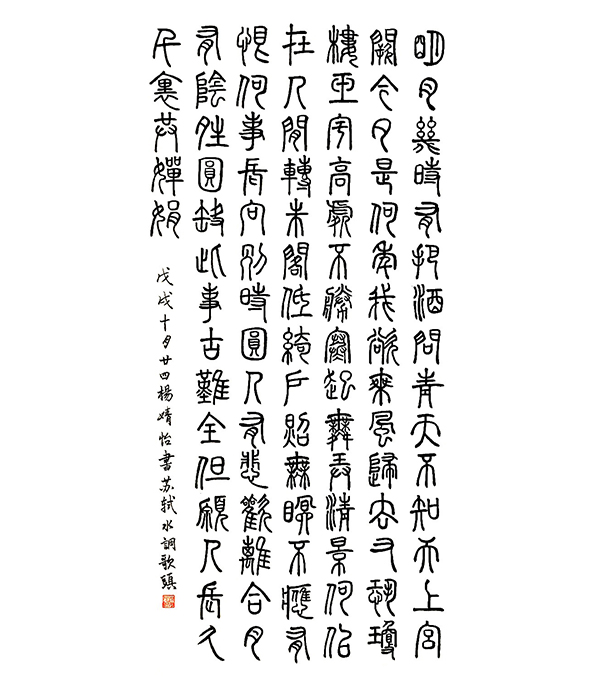 明月幾時有把酒問青天不知天上宮
闕今夕是何年我欲乘風歸去又恐瓊
樓玉宇高處不勝寒起舞弄清景何似
在人間轉朱閣低綺戶照無眠不應有
恨何事長向別時圓人有悲歡離合月
有陰晴圓缺此事古難全但願人長久
千裏共嬋娟
戊戌十月廿四楊婧怡書苏軾水調歌頭